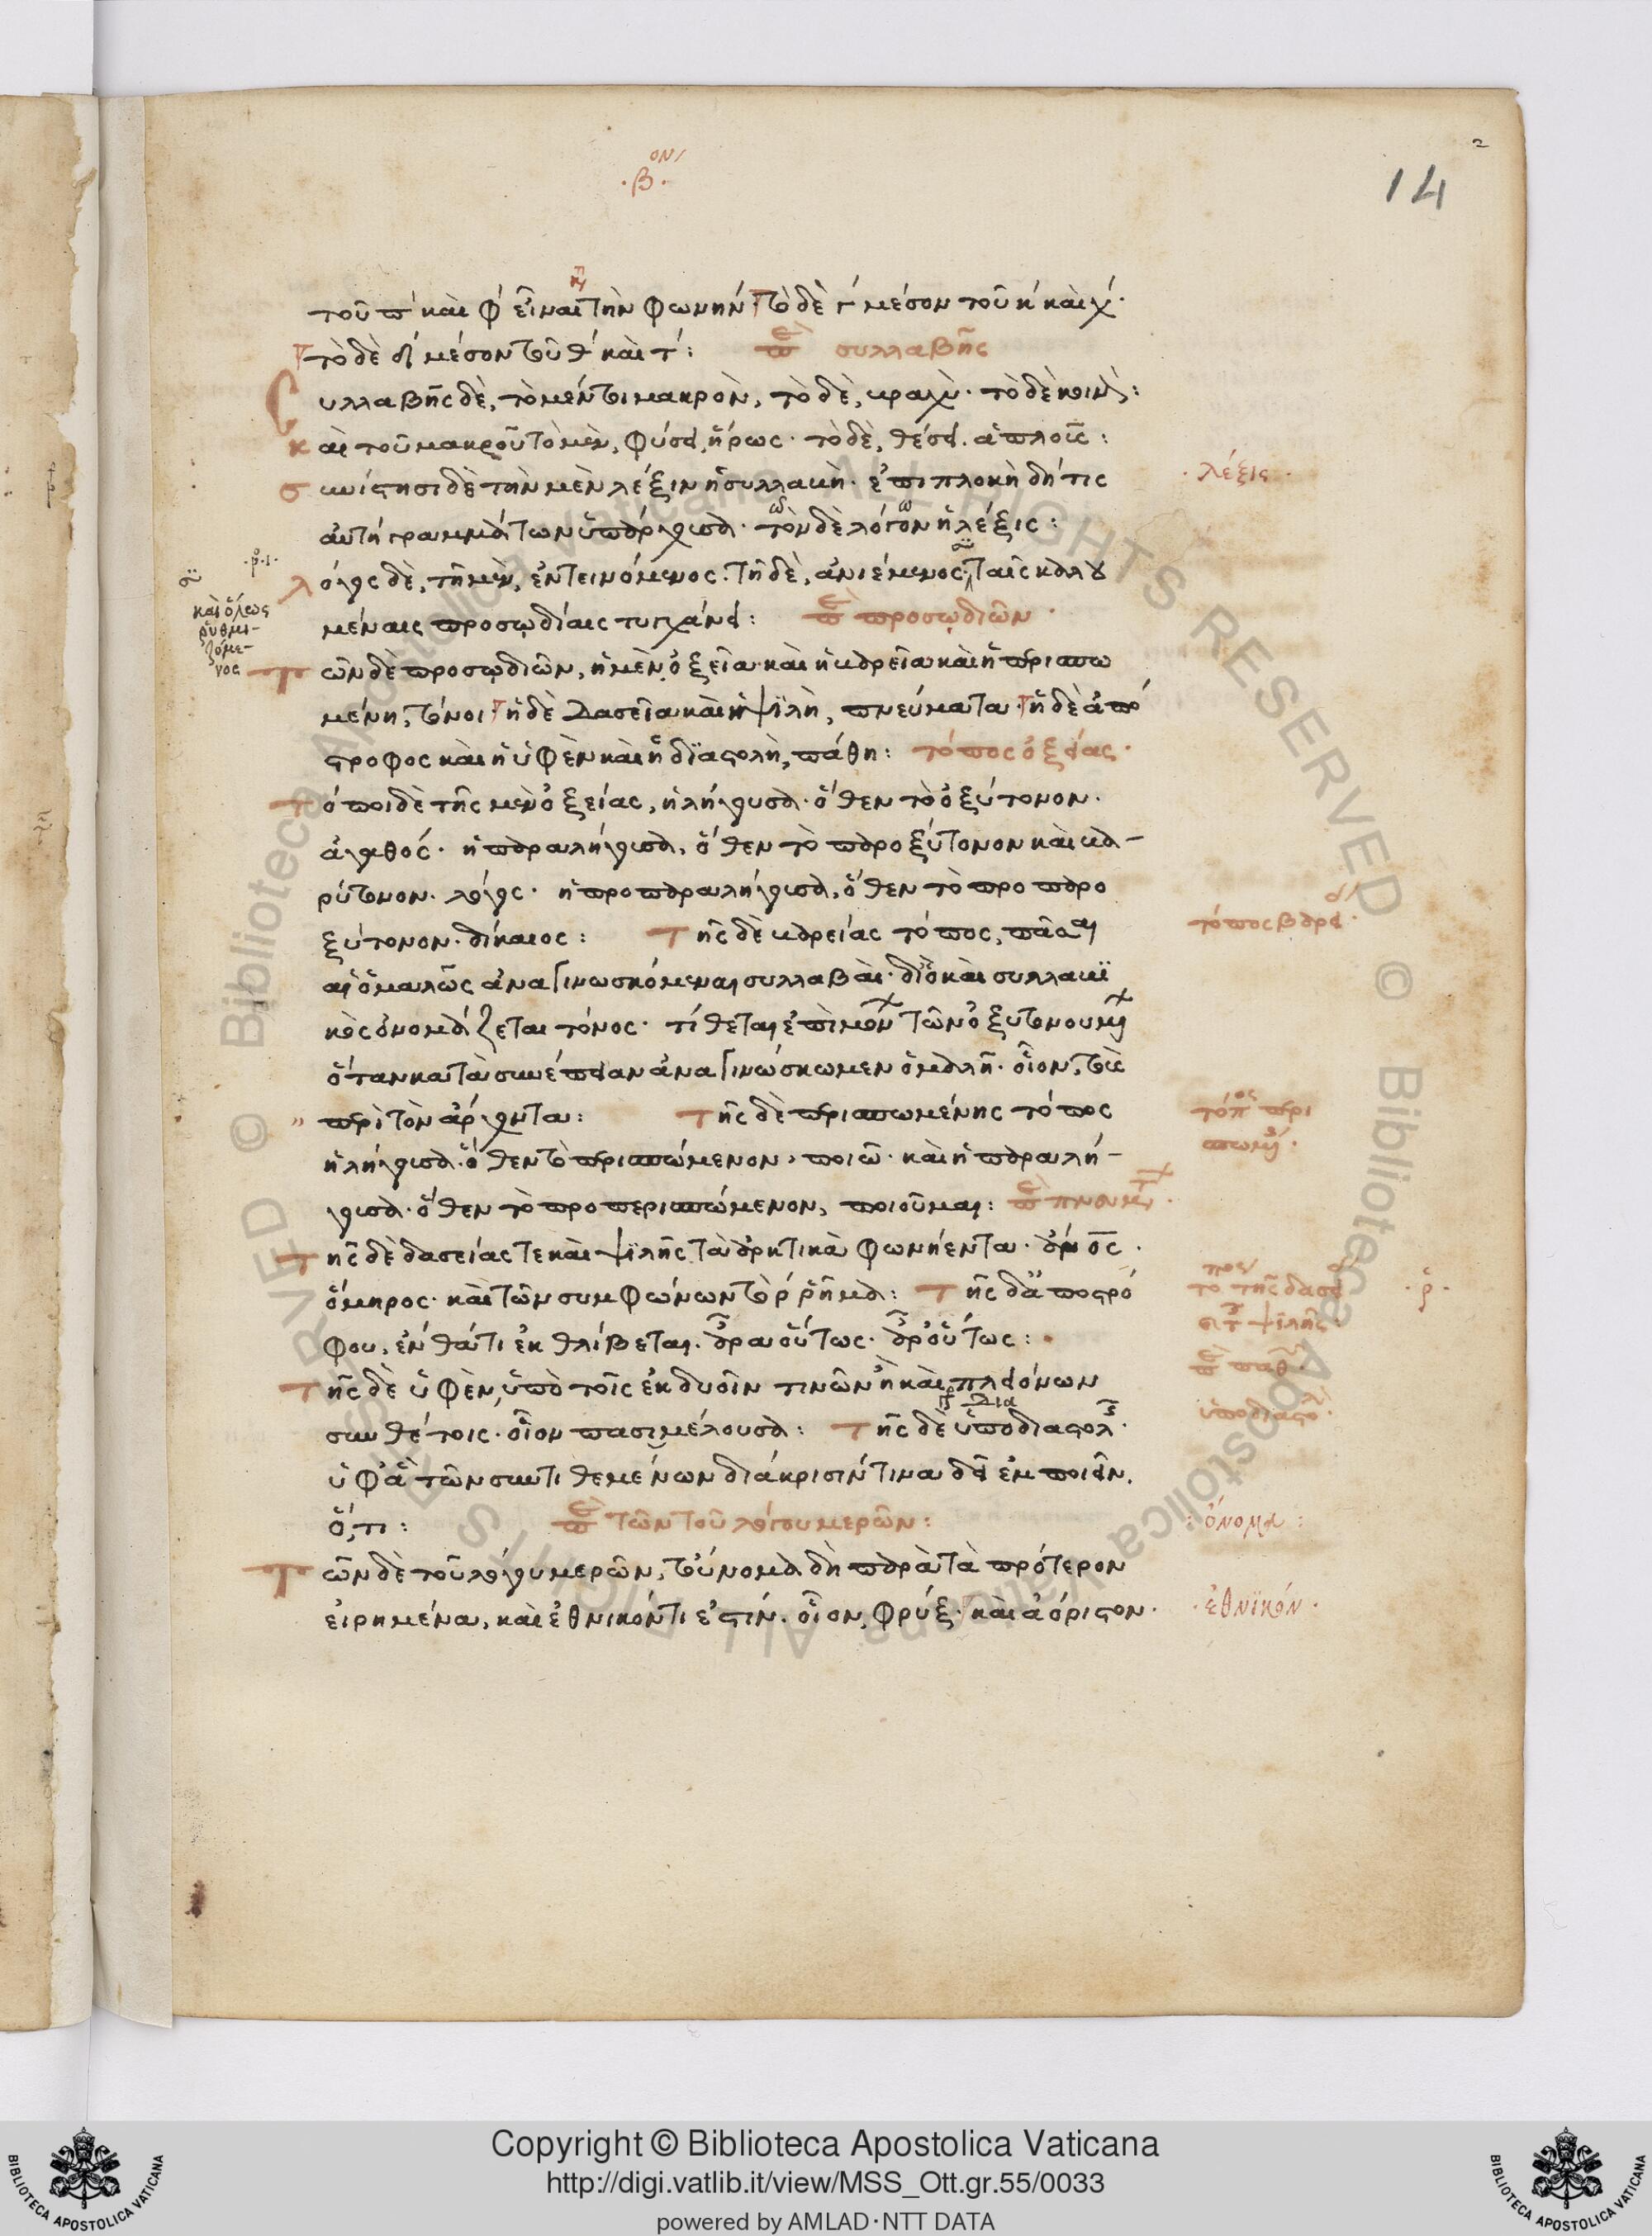 β ον
14
τοῦ π καὶ φ εἶναι τὴν φωνήν· τὸ δὲ γ μέσον τοῦ κ καὶ χ·
τὸ δὲ δ μέσον τοῦ θ καὶ τ: περὶ συλλαβῆς
Συλλαβῆς δὲ, τὸ μέν τι μακρὸν, τὸ δὲ, βραχὺ· τὸ δὲ κοινόν:
καὶ τοῦ μακροῦ τὸ μὲν, φύσει, ἥρως· τὸ δὲ, θέσει.
συνίστησι δὲ τὴν μὲν λέξιν ἡ συλλαβὴ· ἐπιπλοκὴ δή τις
· λέξις ·
αὐτὴ γραμμάτων ὑπάρχουσα· τὸν δὲ λόγον ἡ λέξις:
λόγος δὲ, τῇ μὲν, ἐντεινόμενος. τῇ δὲ, ἀνιέμενος, ταῖς καλου
καὶ ὅλως
ῥυθμι-
ζόμε-
νος
μέναις προσῳδίαις τυγχάνει: περὶ προσῳδιῶν ·
Τῶν δὲ προσῳδιῶν, ἡ μὲν ὀξεῖα καὶ ἡ βαρεῖα καὶ ἡ περισπω
μένη, τόνοι· ἡ δὲ δασεῖα καὶ ἡ ψιλὴ, πνεύματα· ἡ δὲ ἀπό
στροφος καὶ ἡ ὑφὲν καὶ ἡ διαστολὴ, πάθη: τόπος ὀξείας ·
τόποι δὲ τῆς μὲν ὀξείας, ἡ λήγουσα· ὅθεν τὸ ὀξύτονον.
ἀγαθός· ἡ παραλήγουσα, ὅθεν τὸ παροξύτονον καὶ βα-
ρύτονον. λόγος· ἡ προπαραλήγουσα, ὅθεν τὸ προπαρο
ξύτονον. δίκαιος: Τῆς δὲ βαρείας τόπος, πᾶσαι
τόπος βαρεί
αἱ ὁμαλῶς ἀναγινωσκόμεναι συλλαβαὶ· διὸ καὶ συλλαβι
κὸς ὀνομάζεται τόνος· τίθεται ἐπὶ μόνων τῶν ὀξυτονουμένων
ὅταν κατὰ συνέπειαν ἀναγινώσκωμεν ὁμαλῇ. οἷον, τοὺς
περὶ τὸν ἄρχοντα: Τῆς δὲ περισπωμένης τόπος
τόπος περι
σπωμένης ·
ἡ λήγουσα. ὅθεν τὸ περισπώμενον, ποιῶ· καὶ ἡ παραλή-
γουσα· ὅθεν τὸ προπερισπώμενον, ποιοῦμαι: περὶ πνευμάτων ·
τῆς δὲ δασείας τε καὶ ψιλῆς τὰ ἀρκτικὰ φωνήεντα.
ὅμηρος· καὶ τῶν συμφώνων τὸ ρ ῥῆμα: Τῆς δ' ἀποστρό
τόπος τῆς δασεί
ψιλῆς
· ρ ·
φου, ἔνθά τι ἐκθλίβεται. ἆρα οὕτως· ἆρ' οὕτως:
περὶ παθ
Τῆς δὲ ὑφὲν, ὑπὸ τοῖς ἐκ δυοῖν τινῶν ἢ καὶ πλειόνων
συνθέτοις. οἷον πασιμέλουσα: Τῆς δὲ ὑποδιαστολῆς
ὑποδιαστολ
ὑφ' ἃ τῶν συντιθεμένων διάκρισίν τινα δεῖ ἐμποιεῖν.
ὅ, τι: περὶ τῶν τοῦ λόγου μερῶν:
: ὄνομα :
Τῶν δὲ τοῦ λόγου μερῶν, τοὔνομα δὴ παρὰ τὰ πρότερον
εἰρημένα, καὶ ἐθνικόν τι ἐστίν. οἷον, φρύξ· καὶ ἀόριστον·
· ἐθνϊκόν ·
© Biblioteca Apostolica Vaticana ALL RIGHTS RESERVED
Copyright © Biblioteca Apostolica Vaticana
http://digi.vatlib.it/view/MSS_Ott.gr.55/0033
powered by AMLAD·NTT DATA
BIBLIOTECA APOSTOLICA VATICANA
BIBLIOTECA APOSTOLICA VATICANA